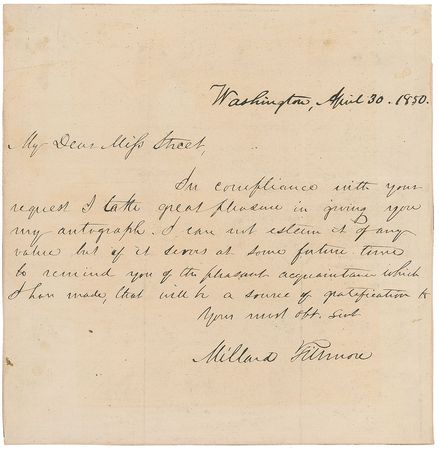 Washington, April 30. 1850.
My Dear Miss Street,
In compliance with your
request I take great pleasure in giving you
my autograph. I can not esteem it of any
value but if it serves at some future time
to remind you of the pleasant acquaintance which
I have made, that will be a source of gratification to
Your most obt. Svt
Millard Fillmore